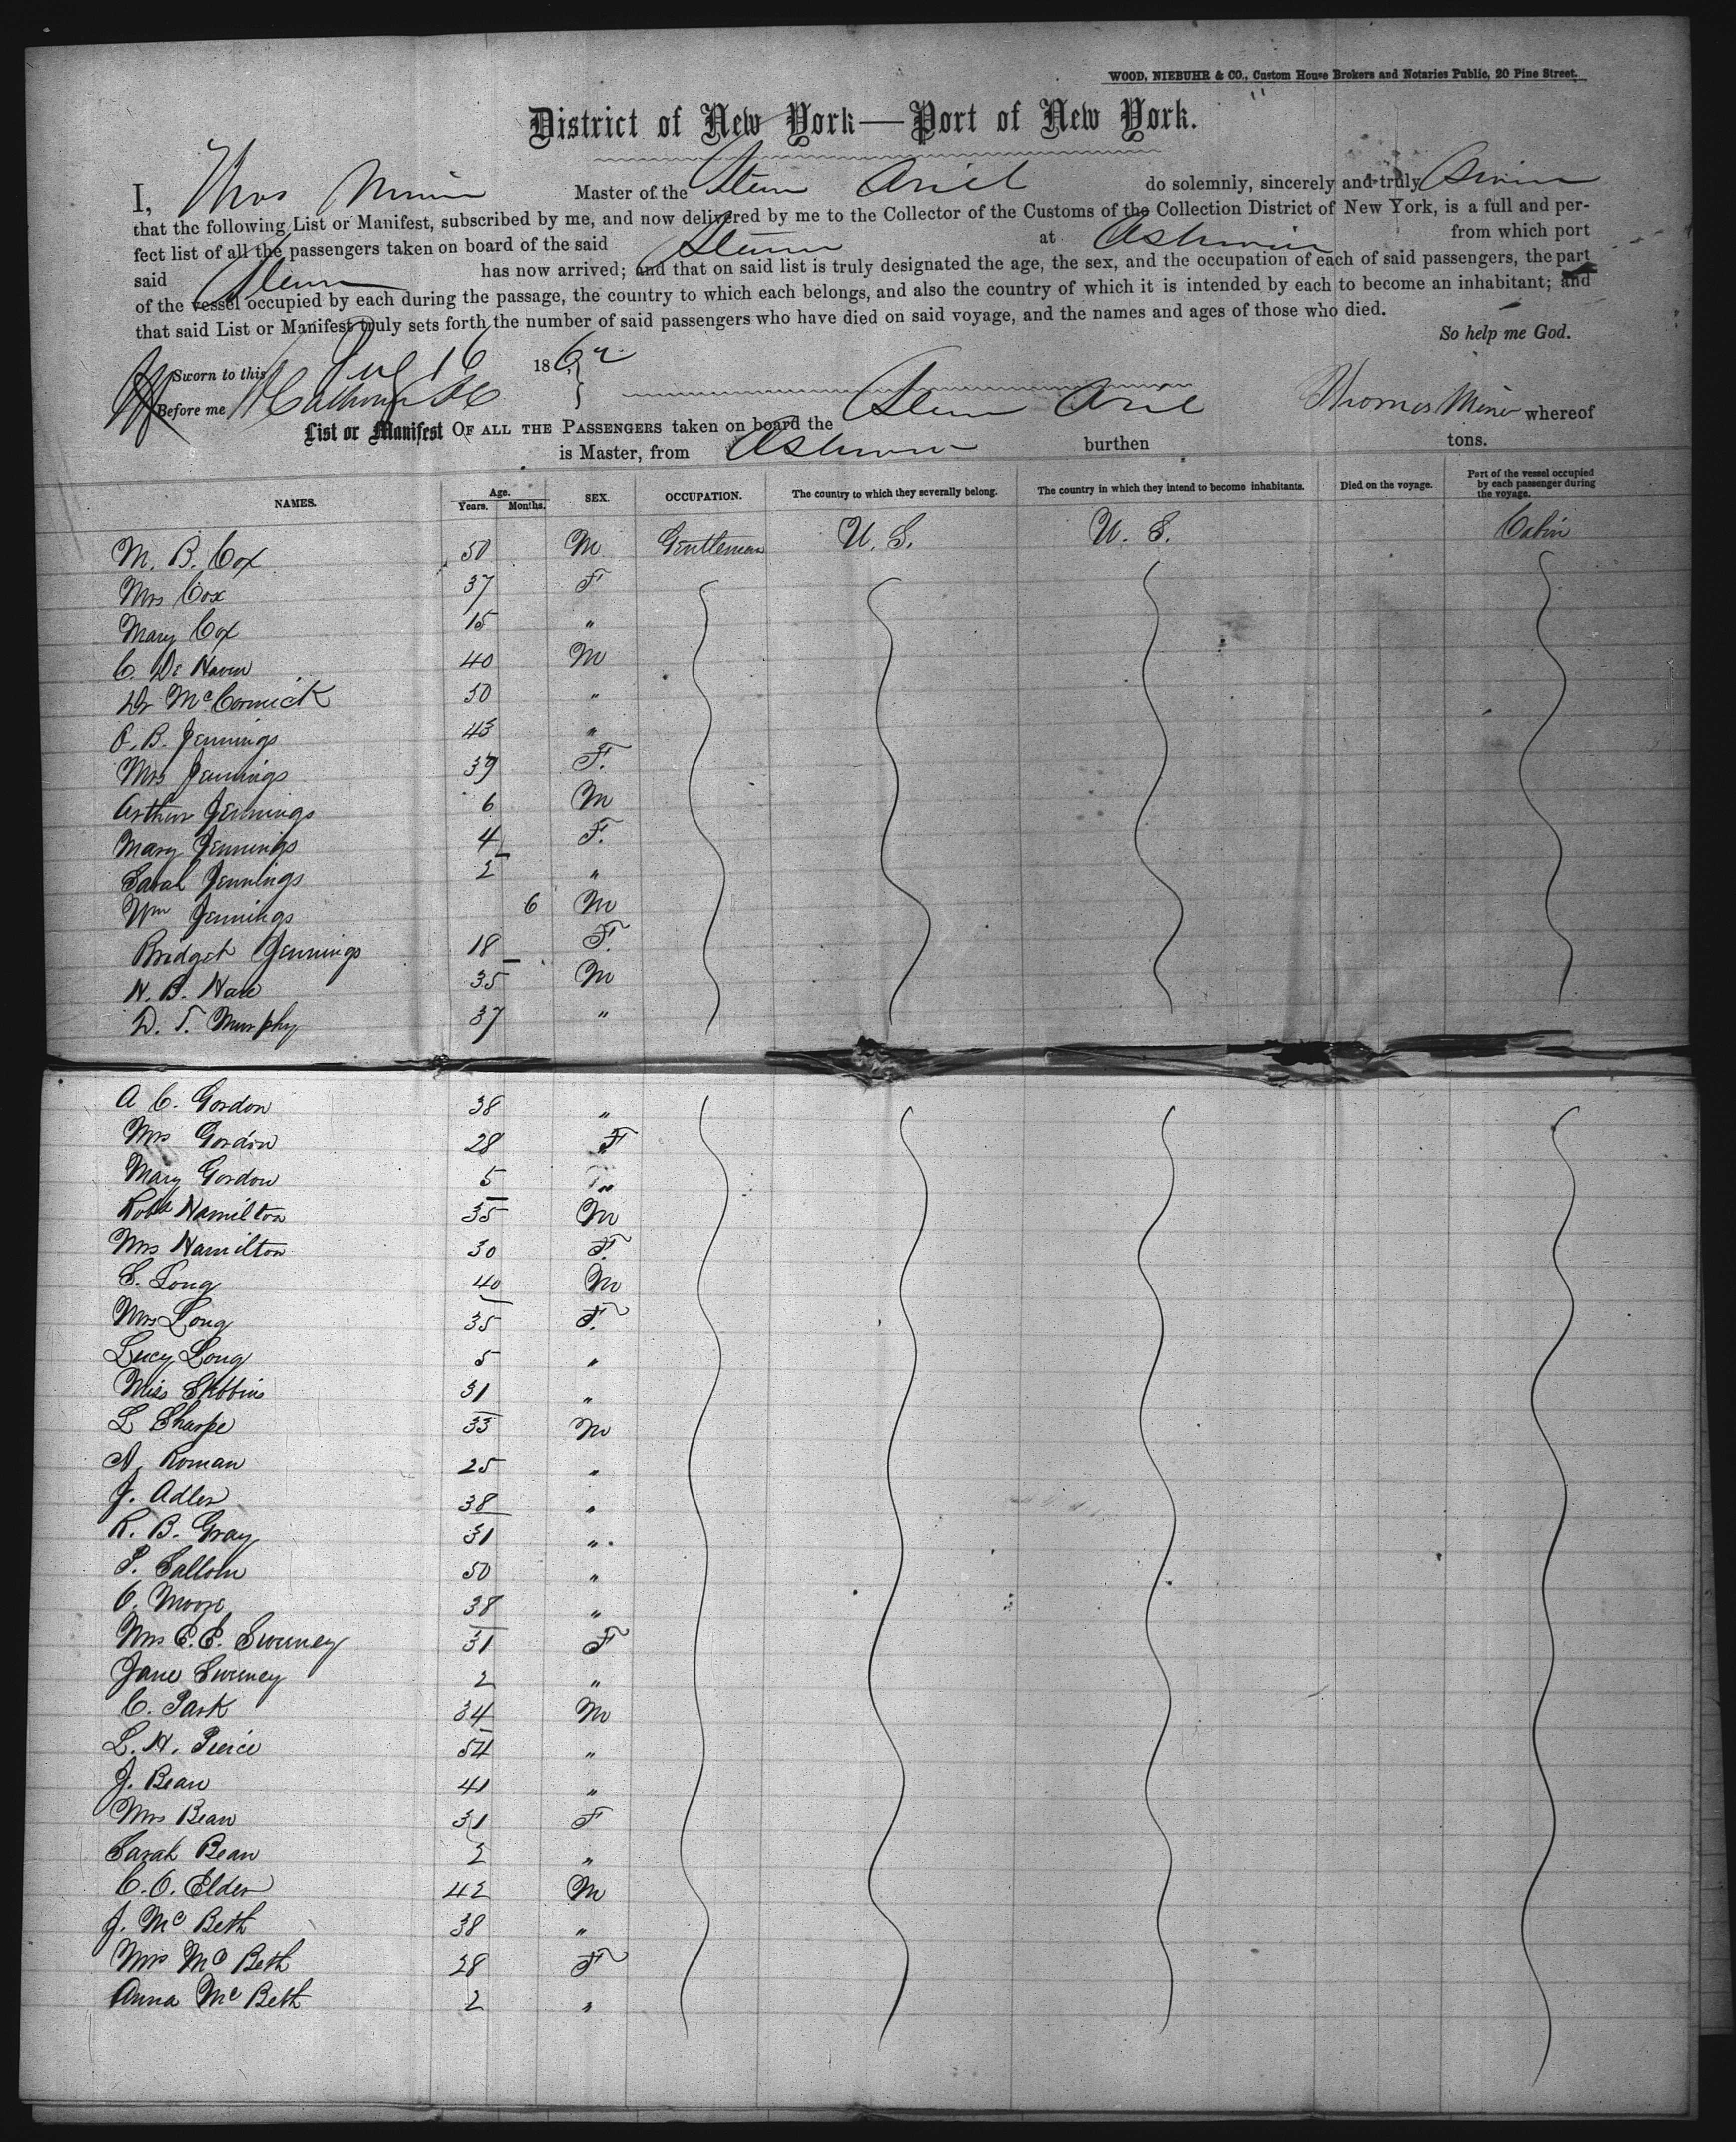 WOOD, NIEBUHR & CO., Custom House Brokers and Notaries Public, 20 Pine Street.
District of New York—Port of New York.
I, Thos Miner Master of the Steam Ariel do solemnly, sincerely and truly
that the following List or Manifest, subscribed by me, and now delivered by me to the Collector of the Customs of the Collection District of New York, is a full and per-
fect list of all the passengers taken on board of the said Steam at from which port
said Steam has now arrived; and that on said list is truly designated the age, the sex, and the occupation of each of said passengers, the part
of the vessel occupied by each during the passage, the country to which each belongs, and also the country of which it is intended by each to become an inhabitant; and
that said List or Manifest truly sets forth the number of said passengers who have died on said voyage, and the names and ages of those who died.
So help me God.
Sworn to this 16 186
Before me
List or Manifest OF ALL THE PASSENGERS taken on board the Steam Ariel Thomas Miner whereof
is Master, from burthen tons.
NAMES. Age. Years. Months. SEX. OCCUPATION. The country to which they severally belong. The country in which they intend to become inhabitants. Died on the voyage. Part of the vessel occupied by each passenger during the voyage.
M. B. Cox 50 M Gentleman U. S. U. S. Cabin
Mrs Cox 37 F
Mary Cox 15 "
C. De Haven 40 M
Dr McCormick 50 "
B. Jennings 43 "
Mrs Jennings 39 F.
Arthur Jennings 6 M
Mary Jennings 4 F.
Sarah Jennings 2 "
Wm Jennings 6 M
Bridget Jennings 18 F.
H. B. 35 M
D. T. Murphy 37 "
A C. Gordon 38 "
Mrs Gordon 28 F
Mary Gordon 5 "
Robt Hamilton 35 M
Mrs Hamilton 30 F.
S. Long 40 M
Mrs Long 35 F.
Lucy Long 5 "
Miss Stebbins 31 "
L Sharpe 33 M
A. Roman 25 "
J. Adler 38 "
R. B. Gray 31 "
P. 50 "
O. Moore 38 "
Mrs E. E. Sweeney 31 F
Jane Sweeney 2 "
C. Park 34 M
L. H. Pierce 54 "
J. Bean 41 "
Mrs Bean 31 F
Sarah Bean 2 "
C. O. Elder 42 M
J. McBeth 38 "
Mrs McBeth 28 F
Anna McBeth 2 "